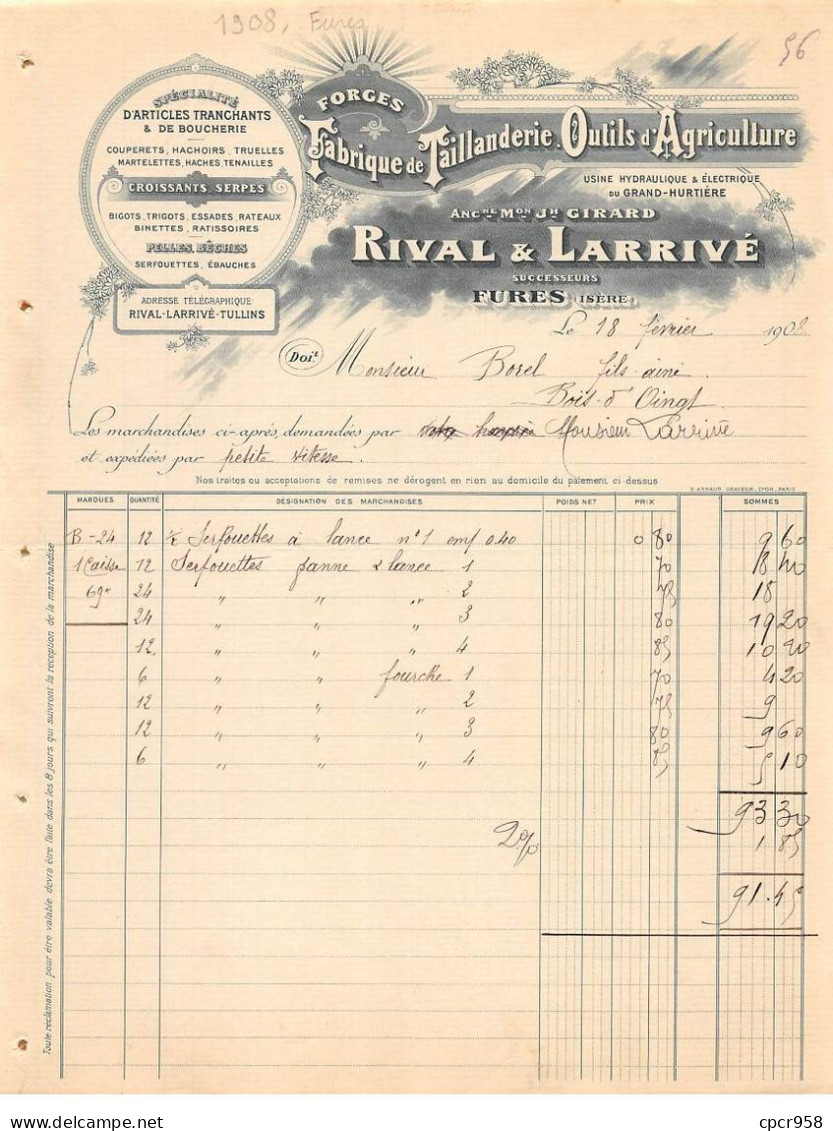 1908, Fures
56
SPÉCIALITÉ
D'ARTICLES TRANCHANTS
& DE BOUCHERIE
COUPERETS, HACHOIRS, TRUELLES
MARTELETTES, HACHES, TENAILLES
CROISSANTS, SERPES
BIGOTS, TRIGOTS, ESSADES, RATEAUX
BINETTES, RATISSOIRES
PELLES, BÊCHES
SERFOUETTES, ÉBAUCHES
ADRESSE TÉLÉGRAPHIQUE
RIVAL-LARRIVÉ-TULLINS
FORGES
Fabrique de Taillanderie. Outils d'Agriculture
USINE HYDRAULIQUE & ÉLECTRIQUE
DU GRAND-HURTIÈRE
ANC.NE MON JH GIRARD
RIVAL & LARRIVÉ
SUCCESSEURS
FURES (ISÈRE)
Le 18 février 1908
Doit Monsieur Borel fils ainé
Bois-d'Oingt
Les marchandises ci-après, demandées par Monsieur Larrivé
et expédiées par petite vitesse.
Nos traites ou acceptations de remises ne dérogent en rien au domicile du paîement ci-dessus
B. ARNAUD, GRAVEUR, LYON, PARIS
MARQUES QUANTITÉ DÉSIGNATION DES MARCHANDISES POIDS NET PRIX SOMMES
B-24 12 1/2 Serfouettes à lance n°1 emf 0.40 0 80 9 60
1 Caisse 12 Serfouettes panne & lance 1 70 18 40
69k 24 " " " 2 75 18
24 " " " 3 80 19 20
12 " " " 4 85 10 20
6 " " fourche 1 70 4 20
12 " " " 2 75 9
12 " " " 3 80 9 60
6 " " " 4 85 5 10
93 30
2% 1 85
91.45
Toute réclamation pour être valable devra être faite dans les 8 jours qui suivront la réception de la marchandise
cpcr958